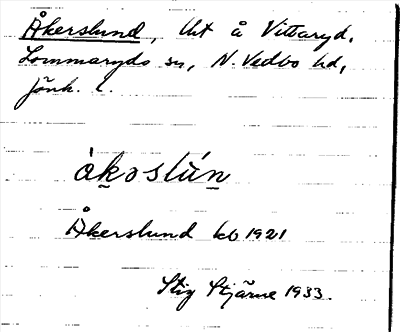 Åkerslund, lht å Vittaryd,
Lommaryds sn, N. Vedbo hd,
Jönk. l.
àkəslún
Åkerslund kb 1921
Stig Stjärne 1933.